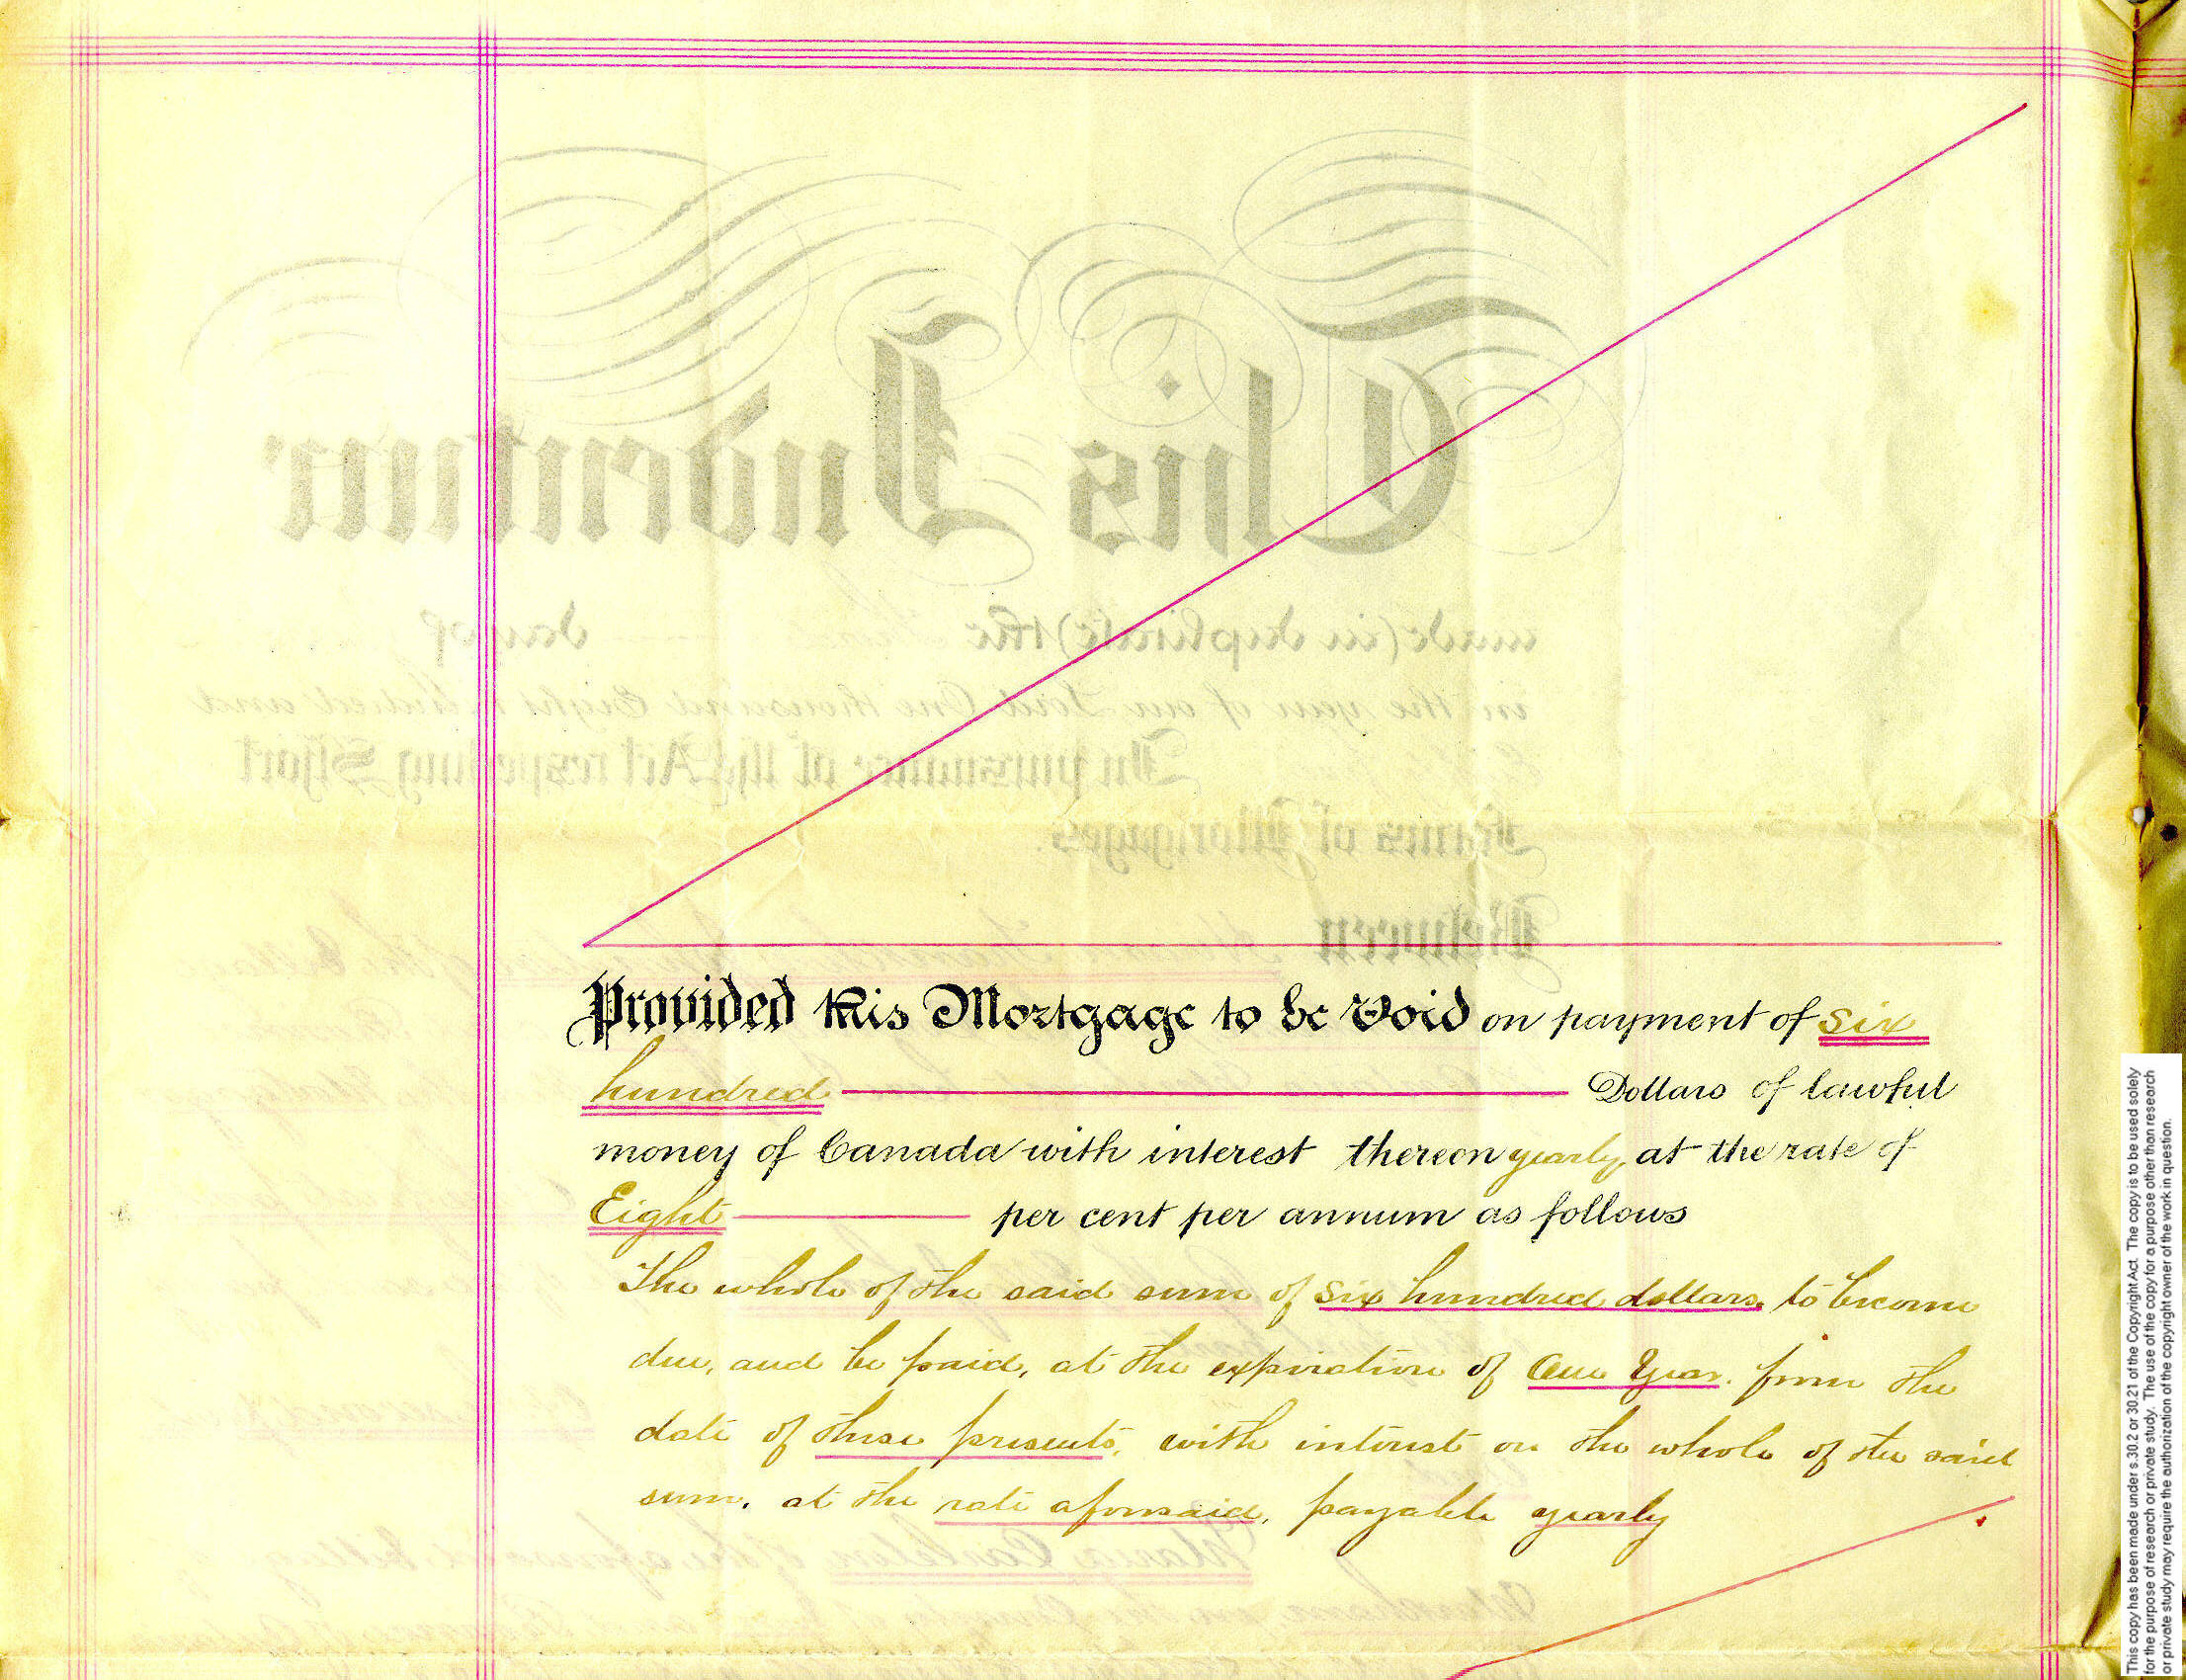 Provided this Mortgage to be Void on payment of Six
hundred Dollars of lawful
money of Canada with interest thereon yearly, at the rate of
Eight per cent per annum as follows
The whole of the said sum of six hundred dollars, to become
due, and be paid, at the expiration of One Year. from the
date of these presents, with interest on the whole of the said
sum, at the rate aforesaid, payable yearly
This Indenture
made (in duplicate) the day of
in the year of our Lord One thousand Eight Hundred and
In pursuance of the Act respecting Short
Forms of Mortgages.
Between
This copy has been made under s.30.2 or 30.21 of the Copyright Act. The copy is to be used solely
for the purpose of research or private study. The use of the copy for a purpose other than research
or private study may require the authorization of the copyright owner of the work in question.